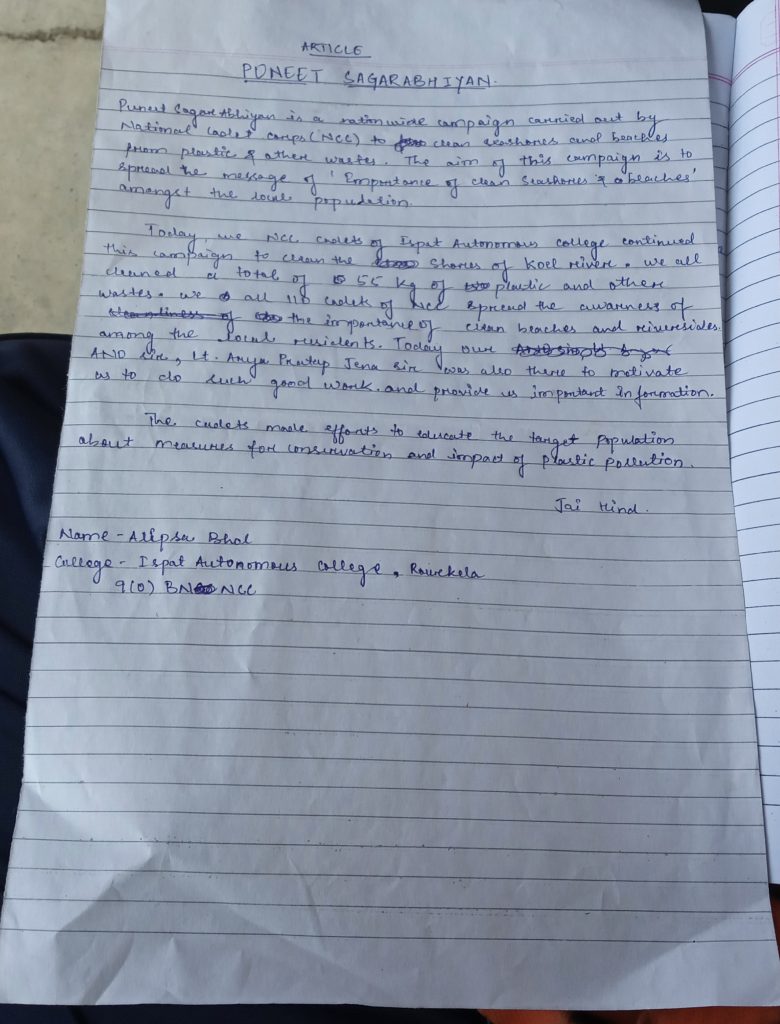 ARTICLE
PUNEET SAGARABHIYAN.
Puneet Sagar Abhiyan is a nationwide campaign carried out by
National Cadet Corps (NCC) to clean seashores and beaches
from plastic & other wastes. The aim of this campaign is to
spread the message of 'Importance of clean seashores & beaches'
amongst the local population.
Today, we NCC cadets of Ispat Autonomous college continued
this campaign to clean the shores of Koel river. we all
cleaned a total of 55 kg of plastic and other
wastes. we all 110 cadets of NCC spread the awarness of
cleanliness of the importance of clean beaches and riversides.
among the local residents. Today our
ANO sir, Lt. Arya Pratap Jena sir was also there to motivate
us to do such good work. and provide us important information.
The cadets made efforts to educate the target population
about measures for conservation and impact of plastic pollution.
Jai Hind.
Name - Alipsa Bhol
College - Ispat Autonomous college, Rourkela
9(O) BN NCC